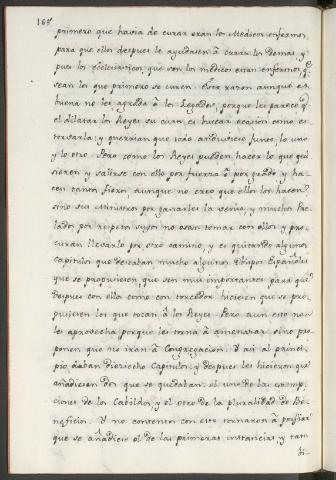 168
primero que havia de curar eran los Medicos enfermos,
para que ellos despues le ayudasen â curar los demas, y
pues los ecclesiasticos, que son los medicos estan enfermos, q.e
sean los que primero se curen. Esta razon aunque es
buena no les agrada â los Legados, porque les parece q.e
el dilatar los Reyes su cura, es buscar ocasion como es-
torvarla; y querrian que todo anduviese junto, lo uno
y lo otro. Pero como los Reyes pueden hacer lo que qui-
sieren, y salirse con ello por fuerza ô por grado, y ha-
cen tanto fieros, aunque no creo que ellos los hacen,
sino sus Ministros por ganarles la venia, y muchos Pre-
lados por respetos suyos no osan tomar con ellos, y pro-
curan llevarlo por otro camino, y es quitando algunos
capitulos que deseaban mucho algunos Obispos Españoles
que se propusiesen, que son mui importantes, para que
despues con ellos como con torcedor, hiciesen que se pro-
pusiesen los que tocan â los Reyes. Pero aun esto no
les aprovecha, porque les torna â amenazar, sino pro-
ponen, que no iran â Congregacion. Y asi al princi-
pio daban dieziocho Capitulos, y despues les hicieron que
añadiesen dos que se quedaban, el uno de las exemp-
ciones de los Cabildos, y el otro de la pluralidad de Be-
neficios. Y no contentos con esto tornaron â porfiar
que se añadiese el de las primeras instancias, y tam-
bi-